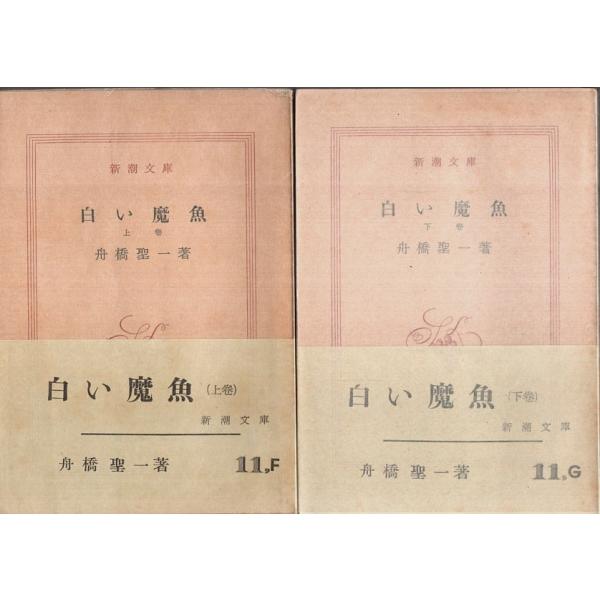 新潮文庫
白い魔魚
上巻
舟橋聖一著
白い魔魚(上卷)
新潮文庫
舟橋聖一著
11,F
新潮文庫
白い魔魚
下巻
舟橋聖一著
白い魔魚(下卷)
新潮文庫
舟橋聖一著
11,G